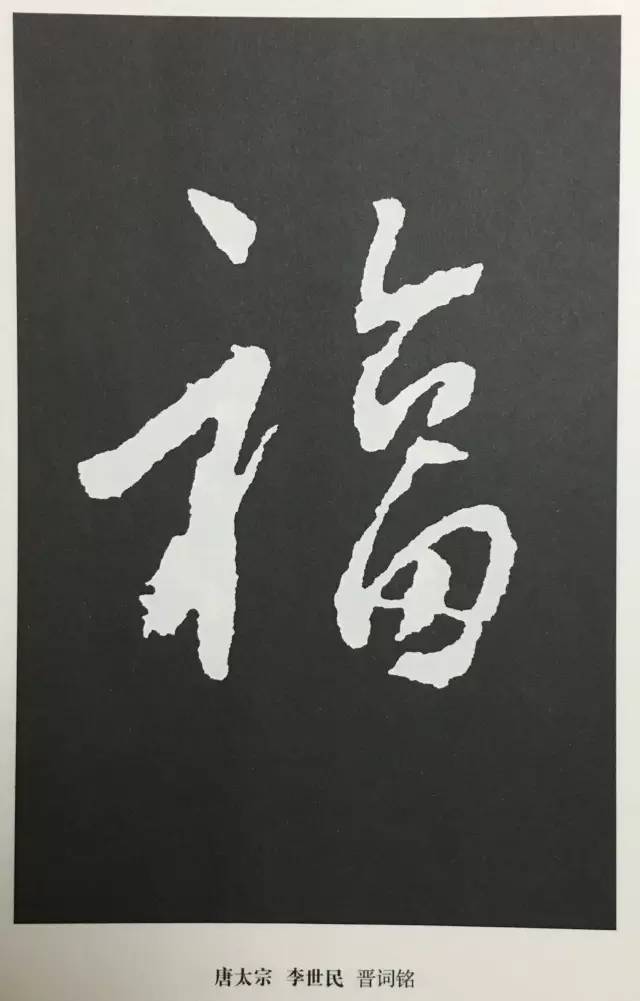 福
唐太宗 李世民 晋词铭